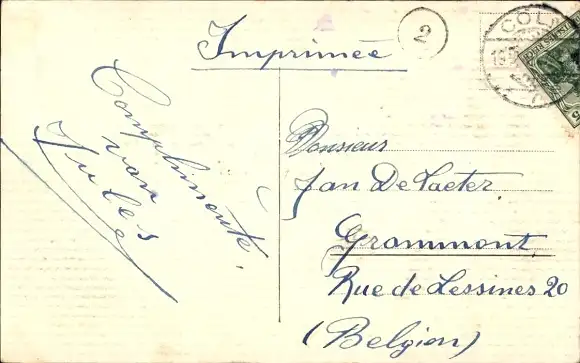 Imprimée
2
CÖLN
Complimente
van
Jules
Monsieur
Jan De Laeter
Grammont
Rue de Lessines 20
(Belgien)